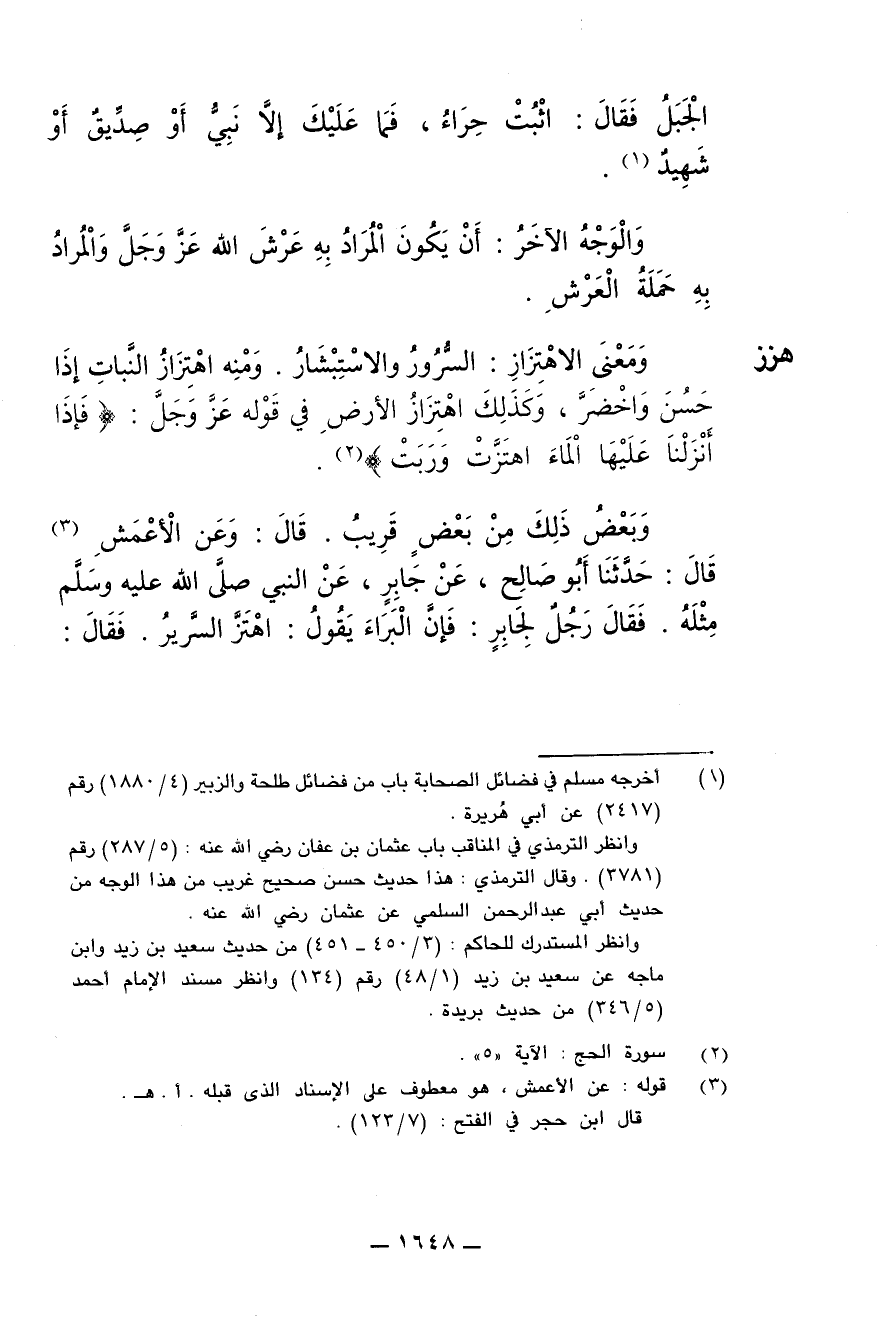 الْجَبَلُ فَقَالَ : اثْبُتْ حِرَاءُ ، فَمَا عَلَيْكَ إِلاَّ نَبِيٌّ أَوْ صِدِّيقٌ أَوْ
شَهِيدٌ (١) .
وَالْوَجْهُ الآخَرُ : أَنْ يَكُونَ الْمُرَادُ بِهِ عَرْشَ الله عَزَّ وَجَلَّ وَالْمُرادُ
بِهِ حَمَلَةُ الْعَرْشِ .
هزز وَمَعْنَى الاهْتِزَازِ : السُّرُورُ والاسْتِبْشَارُ . وَمْنِه اهْتِزَازُ النَّباتِ إِذَا
حَسُنَ وَاخْضَرَّ ، وَكَذَلِكَ اهْتِزَازُ الأرضِ في قَوْله عَزَّ وَجَلَّ : ﴿ فَإِذَا
أَنْزَلْنَا عَلَيْهَا الْمَاءَ اهتَزَّتْ وَرَبَتْ ﴾(٢) .
وَبَعْضُ ذَلِكَ مِنْ بَعْضٍ قَرِيبُ . قَالَ : وَعَن الْأَعْمَشِ (٣)
قَالَ : حَدَّثَنَا أَبُو صَالِحٍ ، عَنْ جَابِرٍ ، عَنْ النبي صلَّى الله عليه وسَلَّم
مِثْلَهُ . فَقَالَ رَجُلٌ لِجَابِرٍ : فَإِنَّ الْبَرَاءَ يَقُولُ : اهْتَزَّ السَّرِيرُ . فَقَالَ :
(١) أخرجه مسلم في فضائل الصحابة باب من فضائل طلحة والزبير (٤/ ١٨٨٠) رقم
(٢٤١٧) عن أبي هُريرة .
وانظر الترمذي في المناقب باب عثمان بن عفان رضي الله عنه : (٥/ ٢٨٧) رقم
(٣٧٨١) . وقال الترمذي : هذا حديث حسن صحيح غريب من هذا الوجه من
حديث أبي عبدالرحمن السلمي عن عثمان رضي الله عنه .
وانظر المستدرك للحاكم : (٣/ ٤٥٠ - ٤٥١) من حديث سعيد بن زيد وابن
ماجه عن سعيد بن زيد (١/ ٤٨) رقم (١٣٤) وانظر مسند الإمام أحمد
(٥/ ٣٤٦) من حديث بريدة .
(٢) سورة الحج : الآية «٥» .
(٣) قوله : عن الأعمش ، هو معطوف على الإسناد الذى قبله . أ . هـ .
قال ابن حجر في الفتح : (٧/ ١٢٣) .
— ١٦٤٨ —